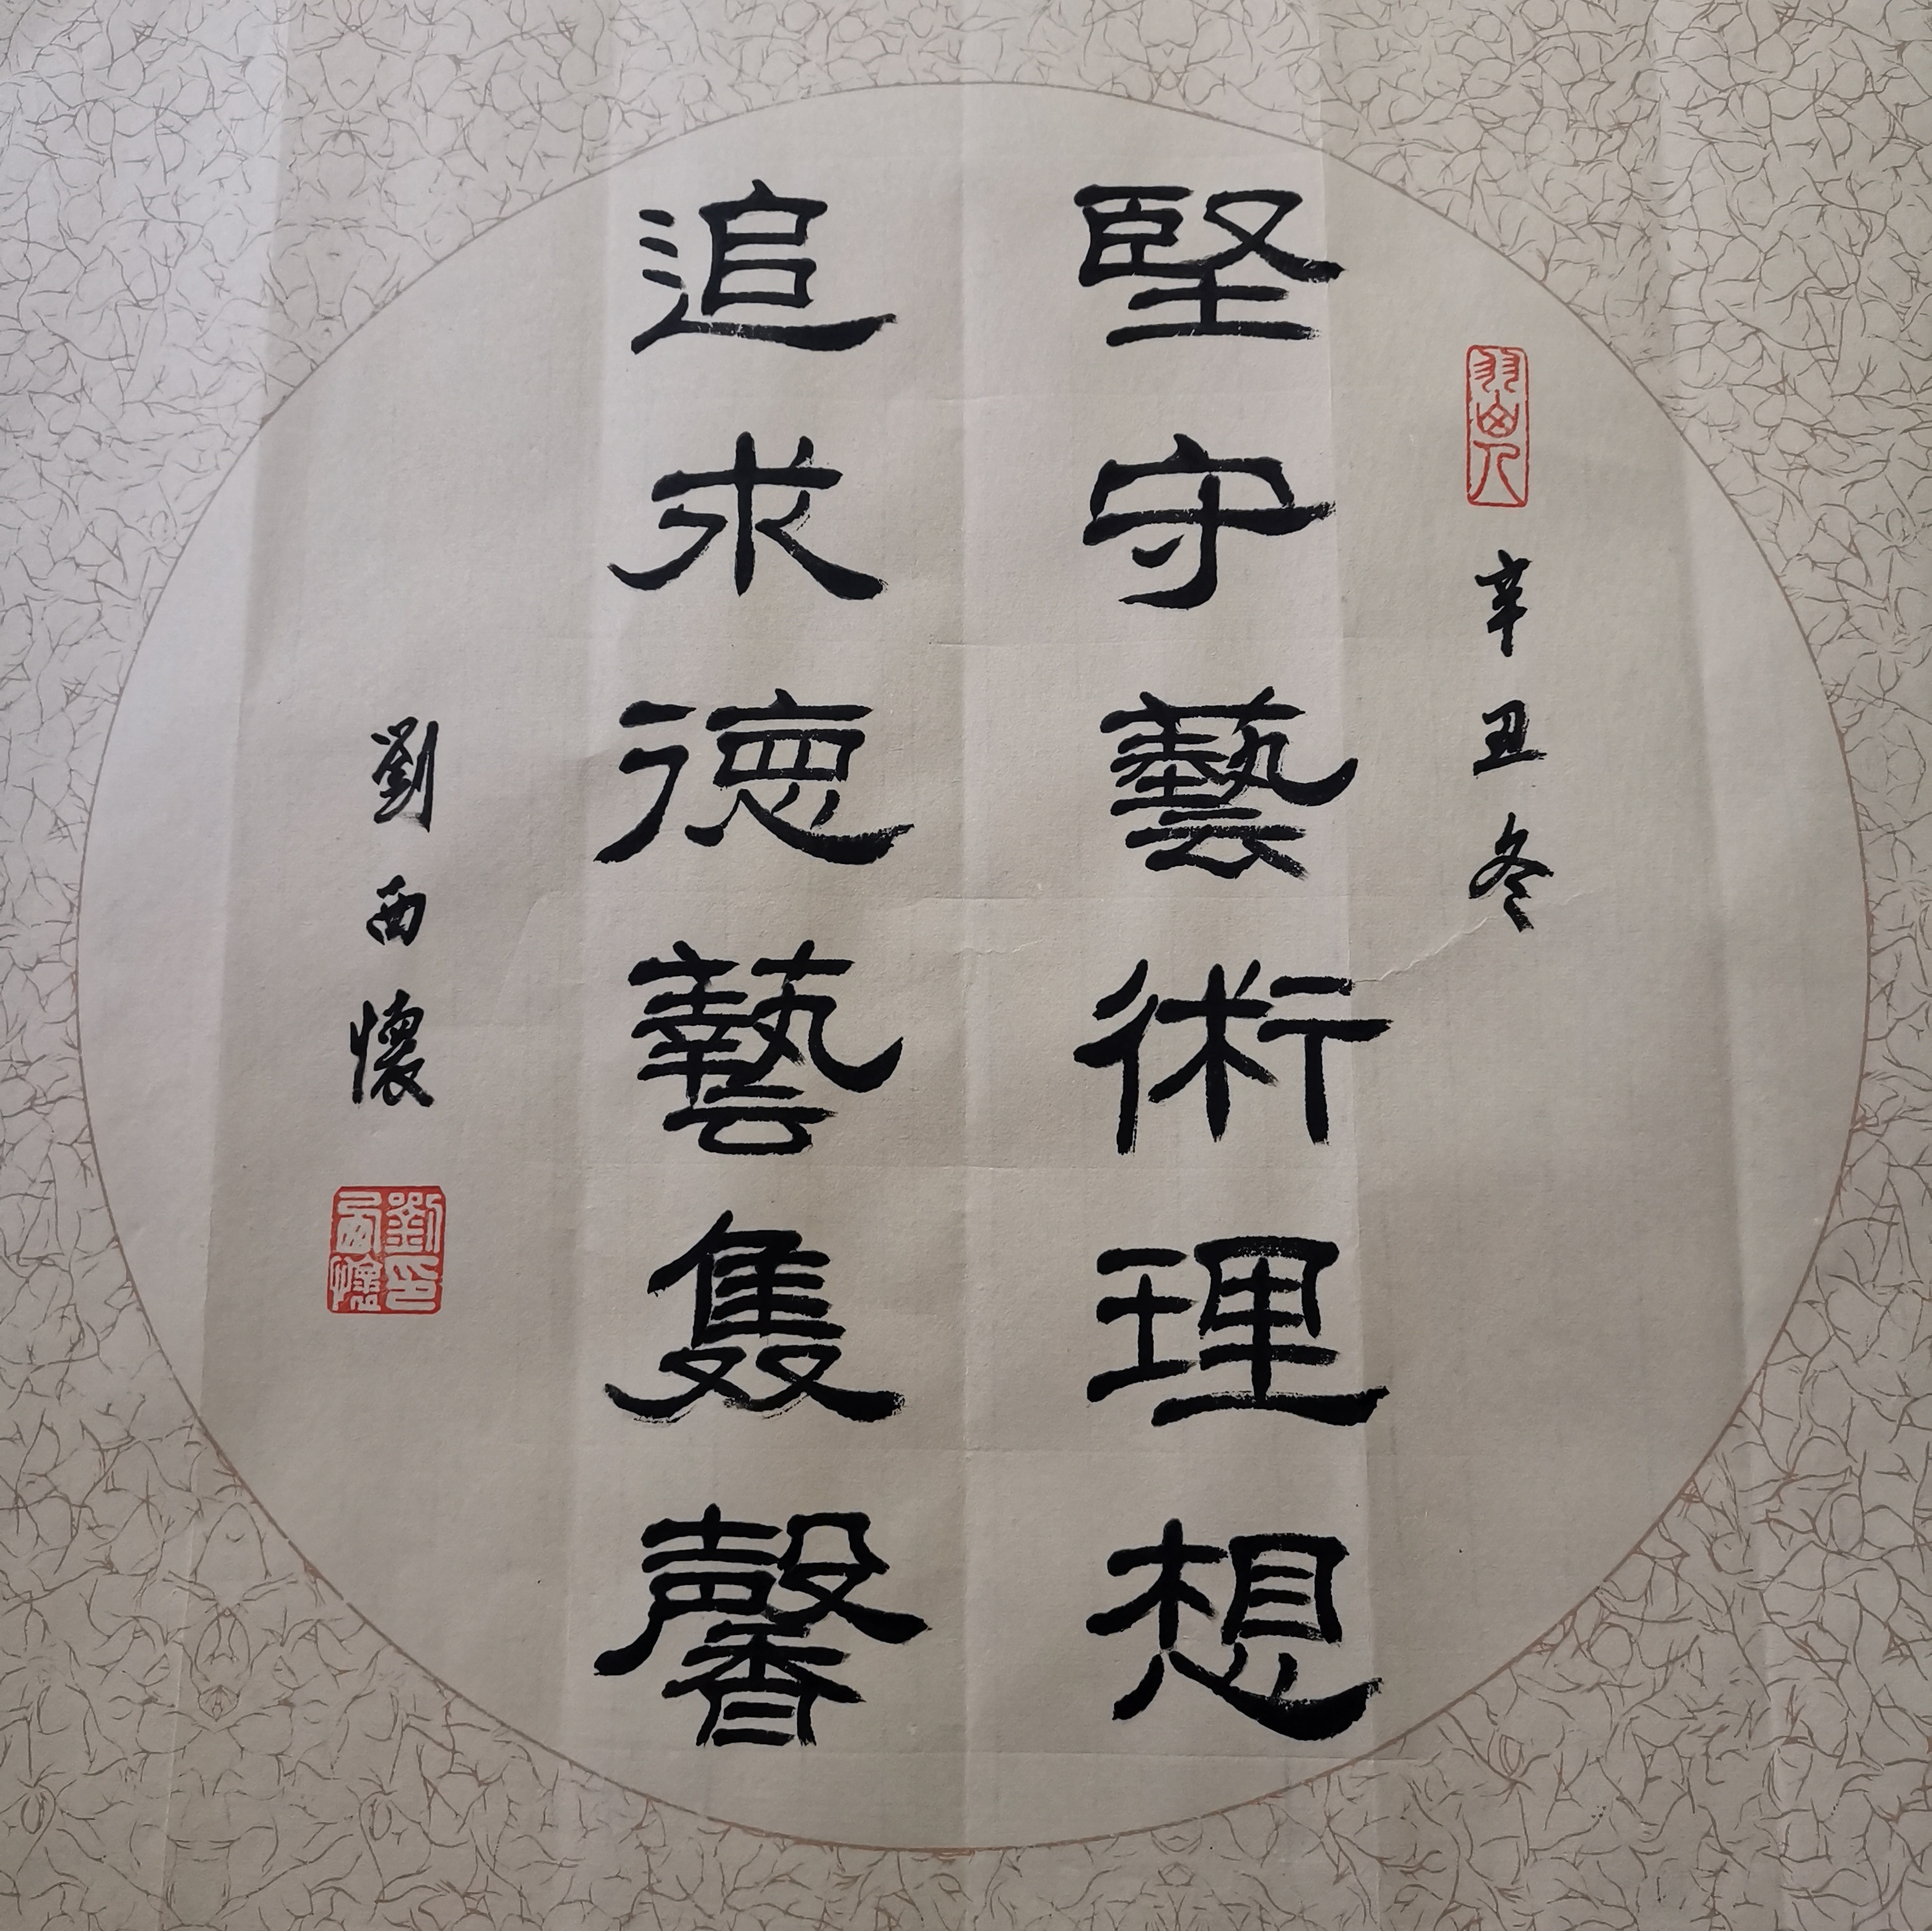 辛丑冬
堅守藝術理想
追求德藝雙馨
劉西懷
劉西懷印